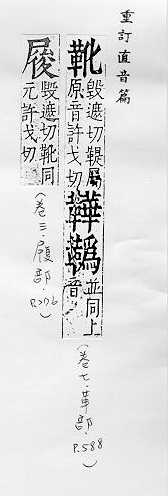 重訂直音篇
靴毀遮切鞮屬
原音許戈切
並同上
音
(卷七.革部.
P.588)
毀遮切靴同
元許戈切
(卷三.履部.
P.206)